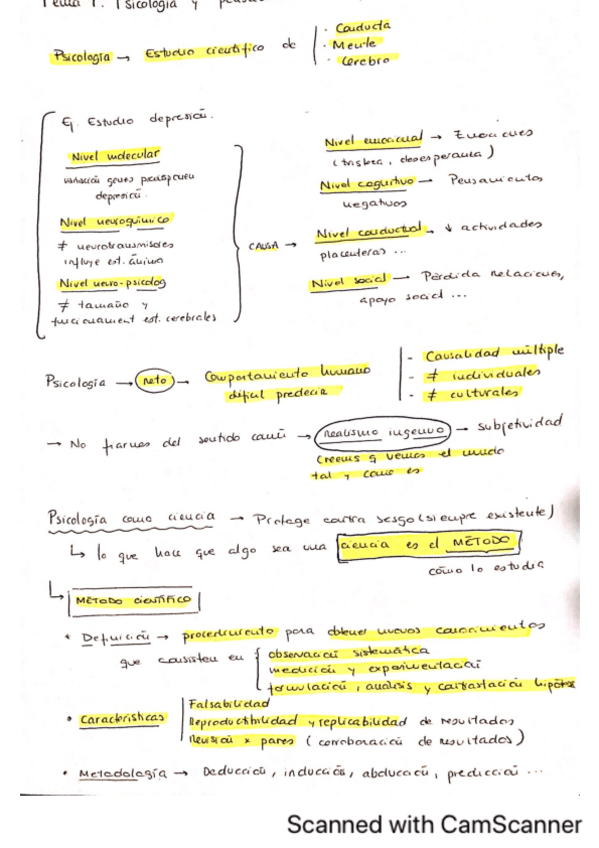 Tema 1. Psicología y
Psicología → Estudio científico de
· Conducta
· Mente
· Cerebro
Ej. Estudio depresión.
Nivel molecular
variación genes predisponen
depresión.
Nivel neuroquímico
≠ neurotransmisores
influye est. ánimo
Nivel neuro-psicolog
≠ tamaño y
funcionament est. cerebrales
CAUSA →
Nivel emocional → Emociones
(tristeza, desesperanza)
Nivel cognitivo — Pensamientos
negativos
Nivel conductual → ↓ actividades
placenteras ...
Nivel social — Pérdida relaciones,
apoyo social ...
Psicología → reto → Comportamiento humano
difícil predecir
- Causalidad múltiple
- ≠ individuales
- ≠ culturales
→ No fiarnos del sentido común → realismo ingenuo → subjetividad
creemos q vemos el mundo
tal y como es
Psicología como ciencia → Protege contra sesgo (siempre existente)
↳ lo que hace que algo sea una ciencia es el MÉTODO
cómo lo estudia
↳ MÉTODO CIENTÍFICO
* Definición → procedimiento para obtener nuevos conocimientos
que consisten en { observación sistemática
medición y experimentación
formulación, análisis y contrastación hipótesis
• Características
Falsabilidad
Reproductibilidad y replicabilidad de resultados
Revisión x pares (corroboración de resultados)
• Metodología → Deducción, inducción, abducción, predicción ...
Scanned with CamScanner